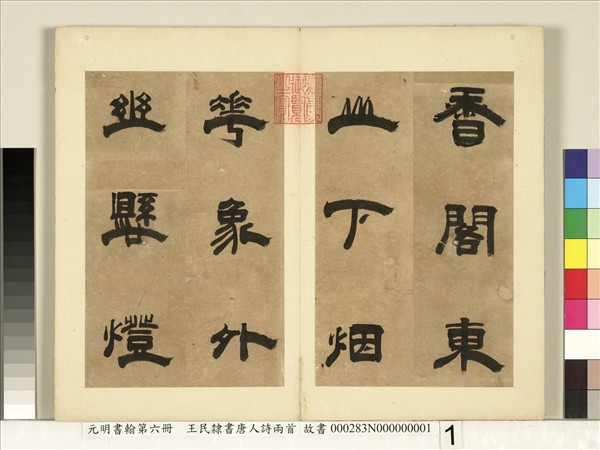 香閣東
山下烟
華象外
幽懸燈
元明書翰第六冊 王民隸書唐人詩兩首 故書 000283N000000001
1